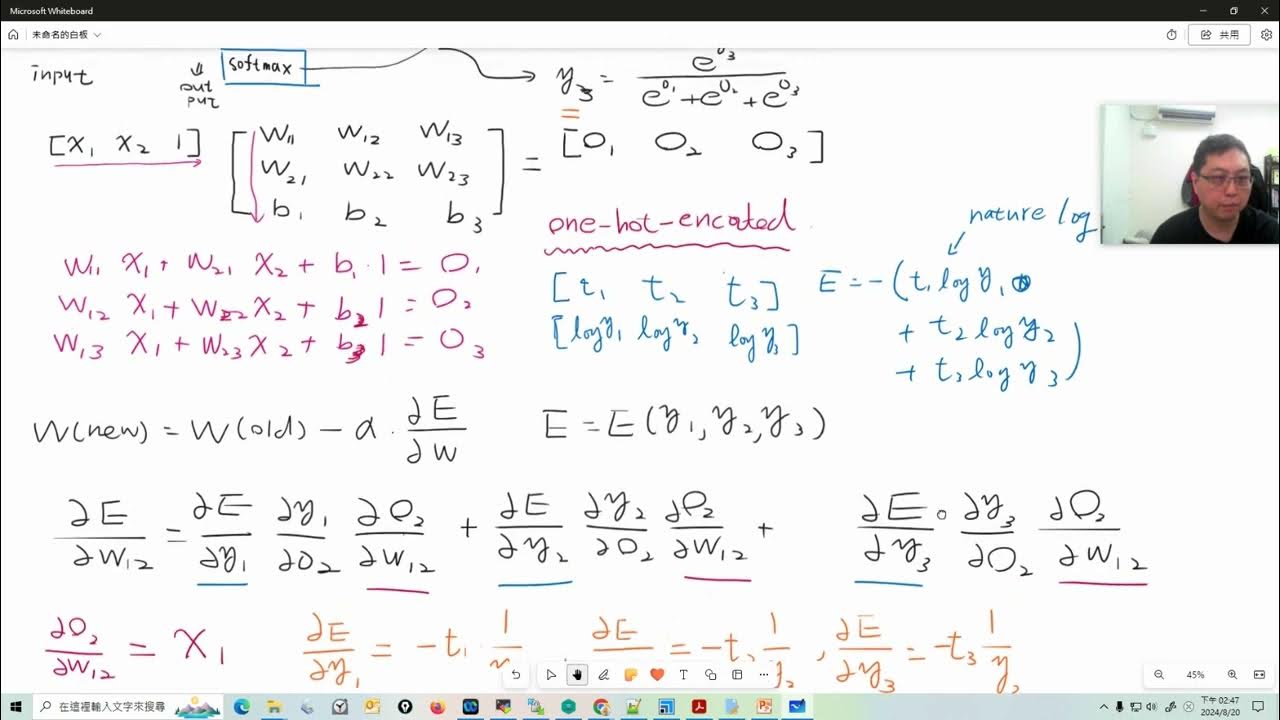 Microsoft Whiteboard
未命名的白板
共用
input
out
put
softmax
y₃ = e^{o₃} / (e^{o₁} + e^{o₂} + e^{o₃})
[x₁ x₂ 1] [w₁₁ w₁₂ w₁₃
w₂₁ w₂₂ w₂₃
b₁ b₂ b₃] = [O₁ O₂ O₃]
one-hot-encoted
nature log
w₁₁ x₁ + w₂₁ x₂ + b₁·1 = O₁
w₁₂ x₁ + w₂₂ x₂ + b₂ 1 = O₂
w₁₃ x₁ + w₂₃ x₂ + b₃ 1 = O₃
[t₁ t₂ t₃]
[log y₁ log y₂ log y₃]
E = -(t₁ log y₁
+ t₂ log y₂
+ t₃ log y₃)
w(new) = w(old) - α · ∂E/∂w
E = E(y₁, y₂, y₃)
∂E/∂w₁₂ = ∂E/∂y₁ ∂y₁/∂O₂ ∂O₂/∂w₁₂ + ∂E/∂y₂ ∂y₂/∂O₂ ∂O₂/∂w₁₂ + ∂E/∂y₃ · ∂y₃/∂O₂ ∂O₂/∂w₁₂
∂O₂/∂w₁₂ = x₁
∂E/∂y₁ = -t₁ · 1/
∂E = -t 1/y₂ , ∂E/∂y₃ = -t₃ 1/y
45%
在這裡輸入文字來搜尋
下午 02:47
2024/8/20